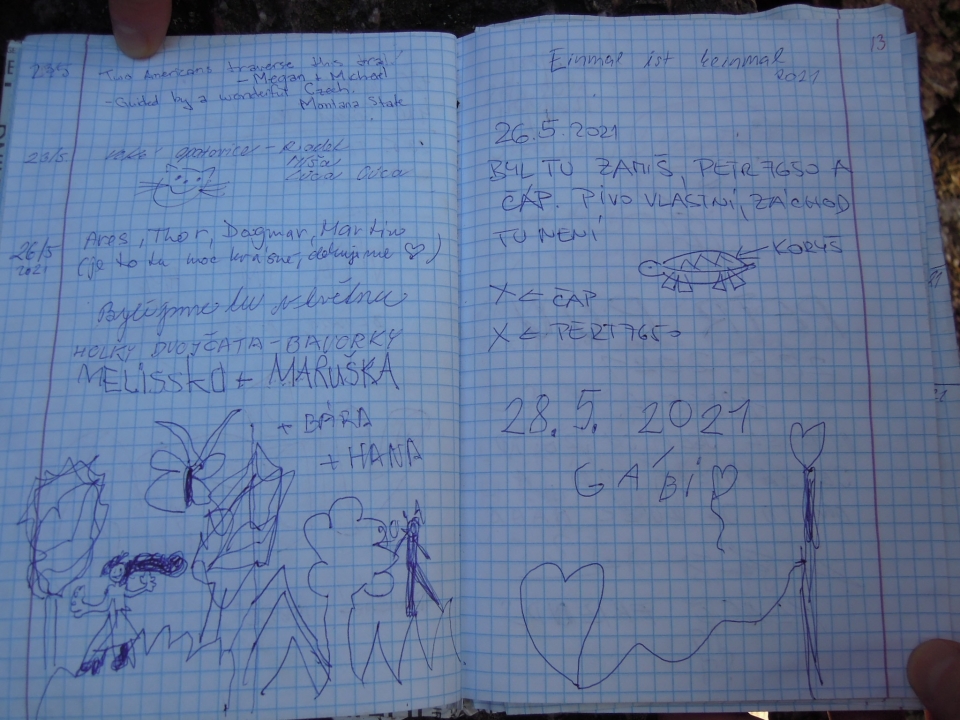 Two Americans traverse this trail!
- Megan + Michael
- Guided by a wonderful Czech.
Montana State
23/5.
Míša
Lůca Oůca
26/5
2021
Ares, Thor, Dagmar, Martina
(je to tu moc krásné, děkujeme ♡)
Byli jsme tu
HOLKY DVOJČATA - BAVORKY
MELISSKO + MARUŠKA
+ BÁRA
+ HANA
13
Einmal ist keinmal
2021
26.5 2021
BYL TU ZAMIŠ, PETR7650 A
ČÁP. PIVO VLASTNÍ, ZÁCHOD
TU NENÍ
KORYŠ
X ← ČÁP
X ← PETR7650
28.5. 2021
GÁBI